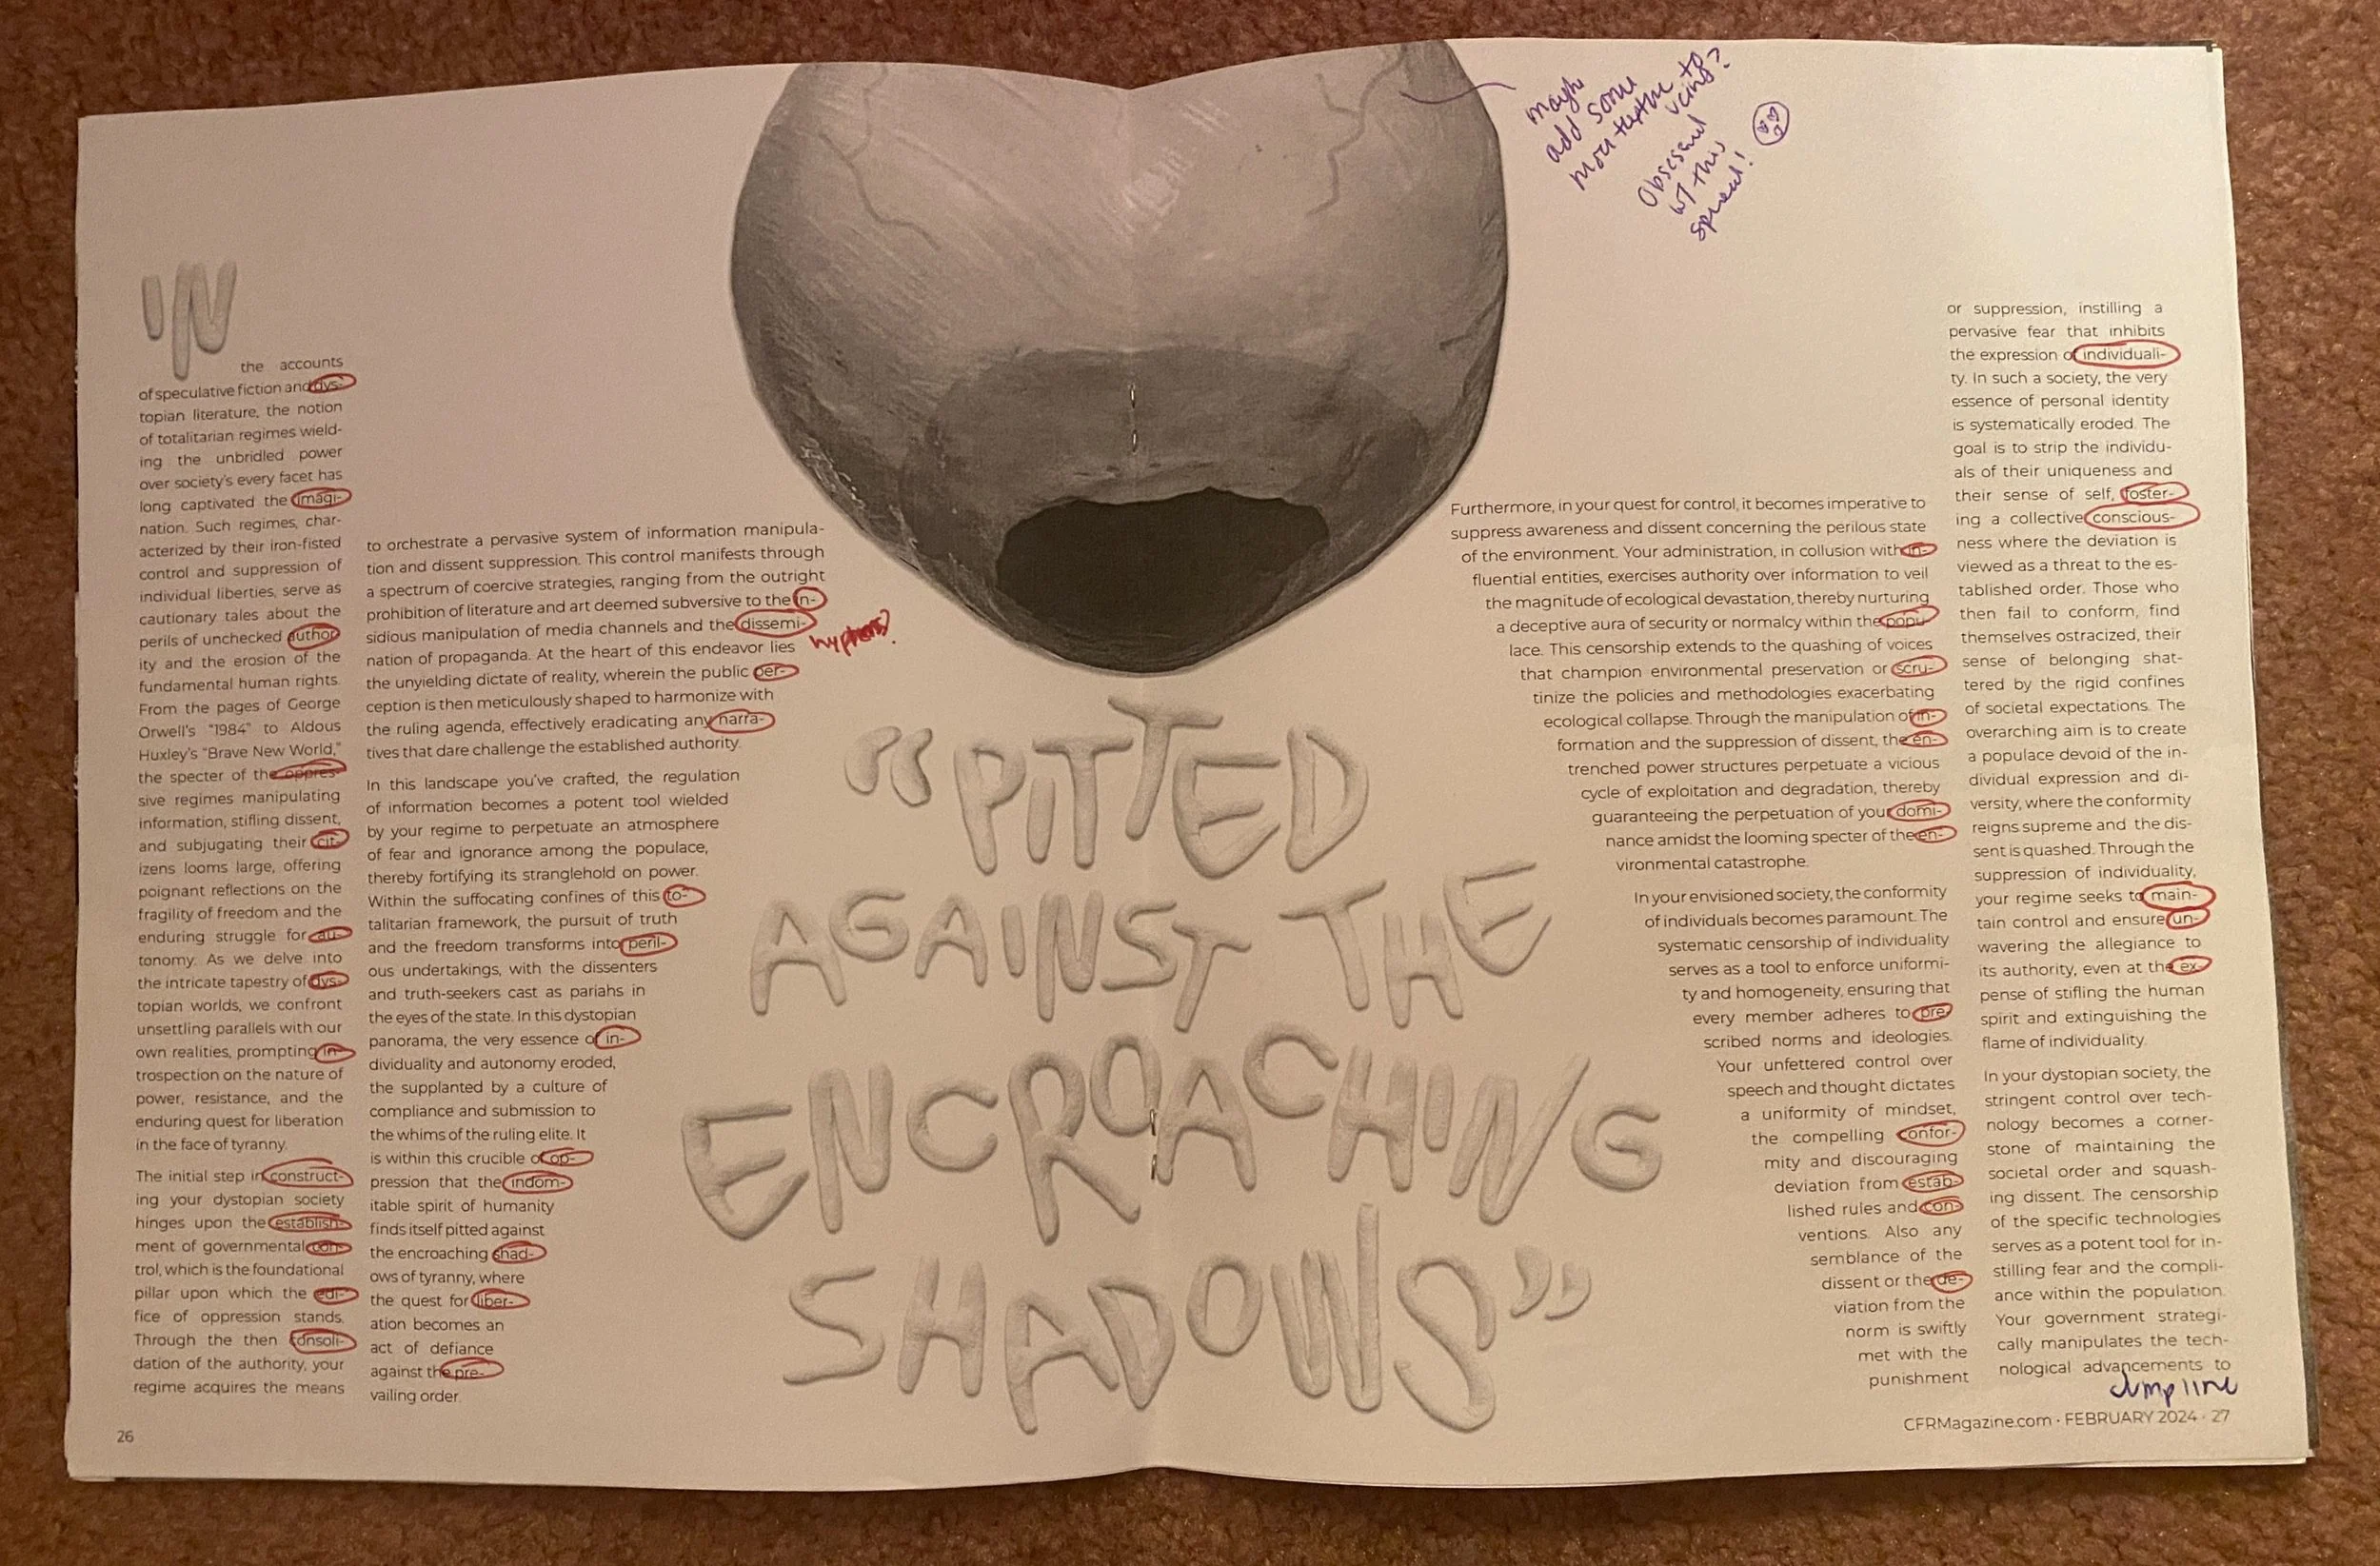 IN
the accounts
of speculative fiction and dys-
topian literature, the notion
of totalitarian regimes wield-
ing the unbridled power
over society's every facet has
long captivated the imagi-
nation. Such regimes, char-
acterized by their iron-fisted
control and suppression of
individual liberties, serve as
cautionary tales about the
perils of unchecked author
ity and the erosion of the
fundamental human rights.
From the pages of George
Orwell's "1984" to Aldous
Huxley's "Brave New World,"
the specter of the oppres-
sive regimes manipulating
information, stifling dissent,
and subjugating their cit-
izens looms large, offering
poignant reflections on the
fragility of freedom and the
enduring struggle for au-
tonomy. As we delve into
the intricate tapestry of dys-
topian worlds, we confront
unsettling parallels with our
own realities, prompting in-
trospection on the nature of
power, resistance, and the
enduring quest for liberation
in the face of tyranny.
The initial step in construct-
ing your dystopian society
hinges upon the establish-
ment of governmental con-
trol, which is the foundational
pillar upon which the edi-
fice of oppression stands.
Through the then consoli-
dation of the authority, your
regime acquires the means
to orchestrate a pervasive system of information manipula-
tion and dissent suppression. This control manifests through
a spectrum of coercive strategies, ranging from the outright
prohibition of literature and art deemed subversive to the in-
sidious manipulation of media channels and the dissemi-
nation of propaganda. At the heart of this endeavor lies
the unyielding dictate of reality, wherein the public per-
ception is then meticulously shaped to harmonize with
the ruling agenda, effectively eradicating any narra-
tives that dare challenge the established authority.
hyphens?
In this landscape you've crafted, the regulation
of information becomes a potent tool wielded
by your regime to perpetuate an atmosphere
of fear and ignorance among the populace,
thereby fortifying its stranglehold on power.
Within the suffocating confines of this to-
talitarian framework, the pursuit of truth
and the freedom transforms into peril-
ous undertakings, with the dissenters
and truth-seekers cast as pariahs in
the eyes of the state. In this dystopian
panorama, the very essence of in-
dividuality and autonomy eroded,
the supplanted by a culture of
compliance and submission to
the whims of the ruling elite. It
is within this crucible of op-
pression that the indom-
itable spirit of humanity
finds itself pitted against
the encroaching shad-
ows of tyranny, where
the quest for liber-
ation becomes an
act of defiance
against the pre-
vailing order.
26
"PITTED
AGAINST THE
ENCROACHING
SHADOWS"
maybe
add some
more texture to
veins?
Obsessed
w/ this
spread!
Furthermore, in your quest for control, it becomes imperative to
suppress awareness and dissent concerning the perilous state
of the environment. Your administration, in collusion with in-
fluential entities, exercises authority over information to veil
the magnitude of ecological devastation, thereby nurturing
a deceptive aura of security or normalcy within the popu-
lace. This censorship extends to the quashing of voices
that champion environmental preservation or scru-
tinize the policies and methodologies exacerbating
ecological collapse. Through the manipulation of in-
formation and the suppression of dissent, the en-
trenched power structures perpetuate a vicious
cycle of exploitation and degradation, thereby
guaranteeing the perpetuation of your domi-
nance amidst the looming specter of the en-
vironmental catastrophe.
In your envisioned society, the conformity
of individuals becomes paramount. The
systematic censorship of individuality
serves as a tool to enforce uniformi-
ty and homogeneity, ensuring that
every member adheres to pre
scribed norms and ideologies.
Your unfettered control over
speech and thought dictates
a uniformity of mindset,
the compelling confor-
mity and discouraging
deviation from estab-
lished rules and con-
ventions. Also any
semblance of the
dissent or the de-
viation from the
norm is swiftly
met with the
punishment
or suppression, instilling a
pervasive fear that inhibits
the expression of individuali-
ty. In such a society, the very
essence of personal identity
is systematically eroded. The
goal is to strip the individu-
als of their uniqueness and
their sense of self, foster-
ing a collective conscious-
ness where the deviation is
viewed as a threat to the es-
tablished order. Those who
then fail to conform, find
themselves ostracized, their
sense of belonging shat-
tered by the rigid confines
of societal expectations. The
overarching aim is to create
a populace devoid of the in-
dividual expression and di-
versity, where the conformity
reigns supreme and the dis-
sent is quashed. Through the
suppression of individuality,
your regime seeks to main-
tain control and ensure un-
wavering the allegiance to
its authority, even at the ex-
pense of stifling the human
spirit and extinguishing the
flame of individuality.
In your dystopian society, the
stringent control over tech-
nology becomes a corner-
stone of maintaining the
societal order and squash-
ing dissent. The censorship
of the specific technologies
serves as a potent tool for in-
stilling fear and the compli-
ance within the population.
Your government strategi-
cally manipulates the tech-
nological advancements to
Jump line
CFRMagazine.com · FEBRUARY 2024 · 27